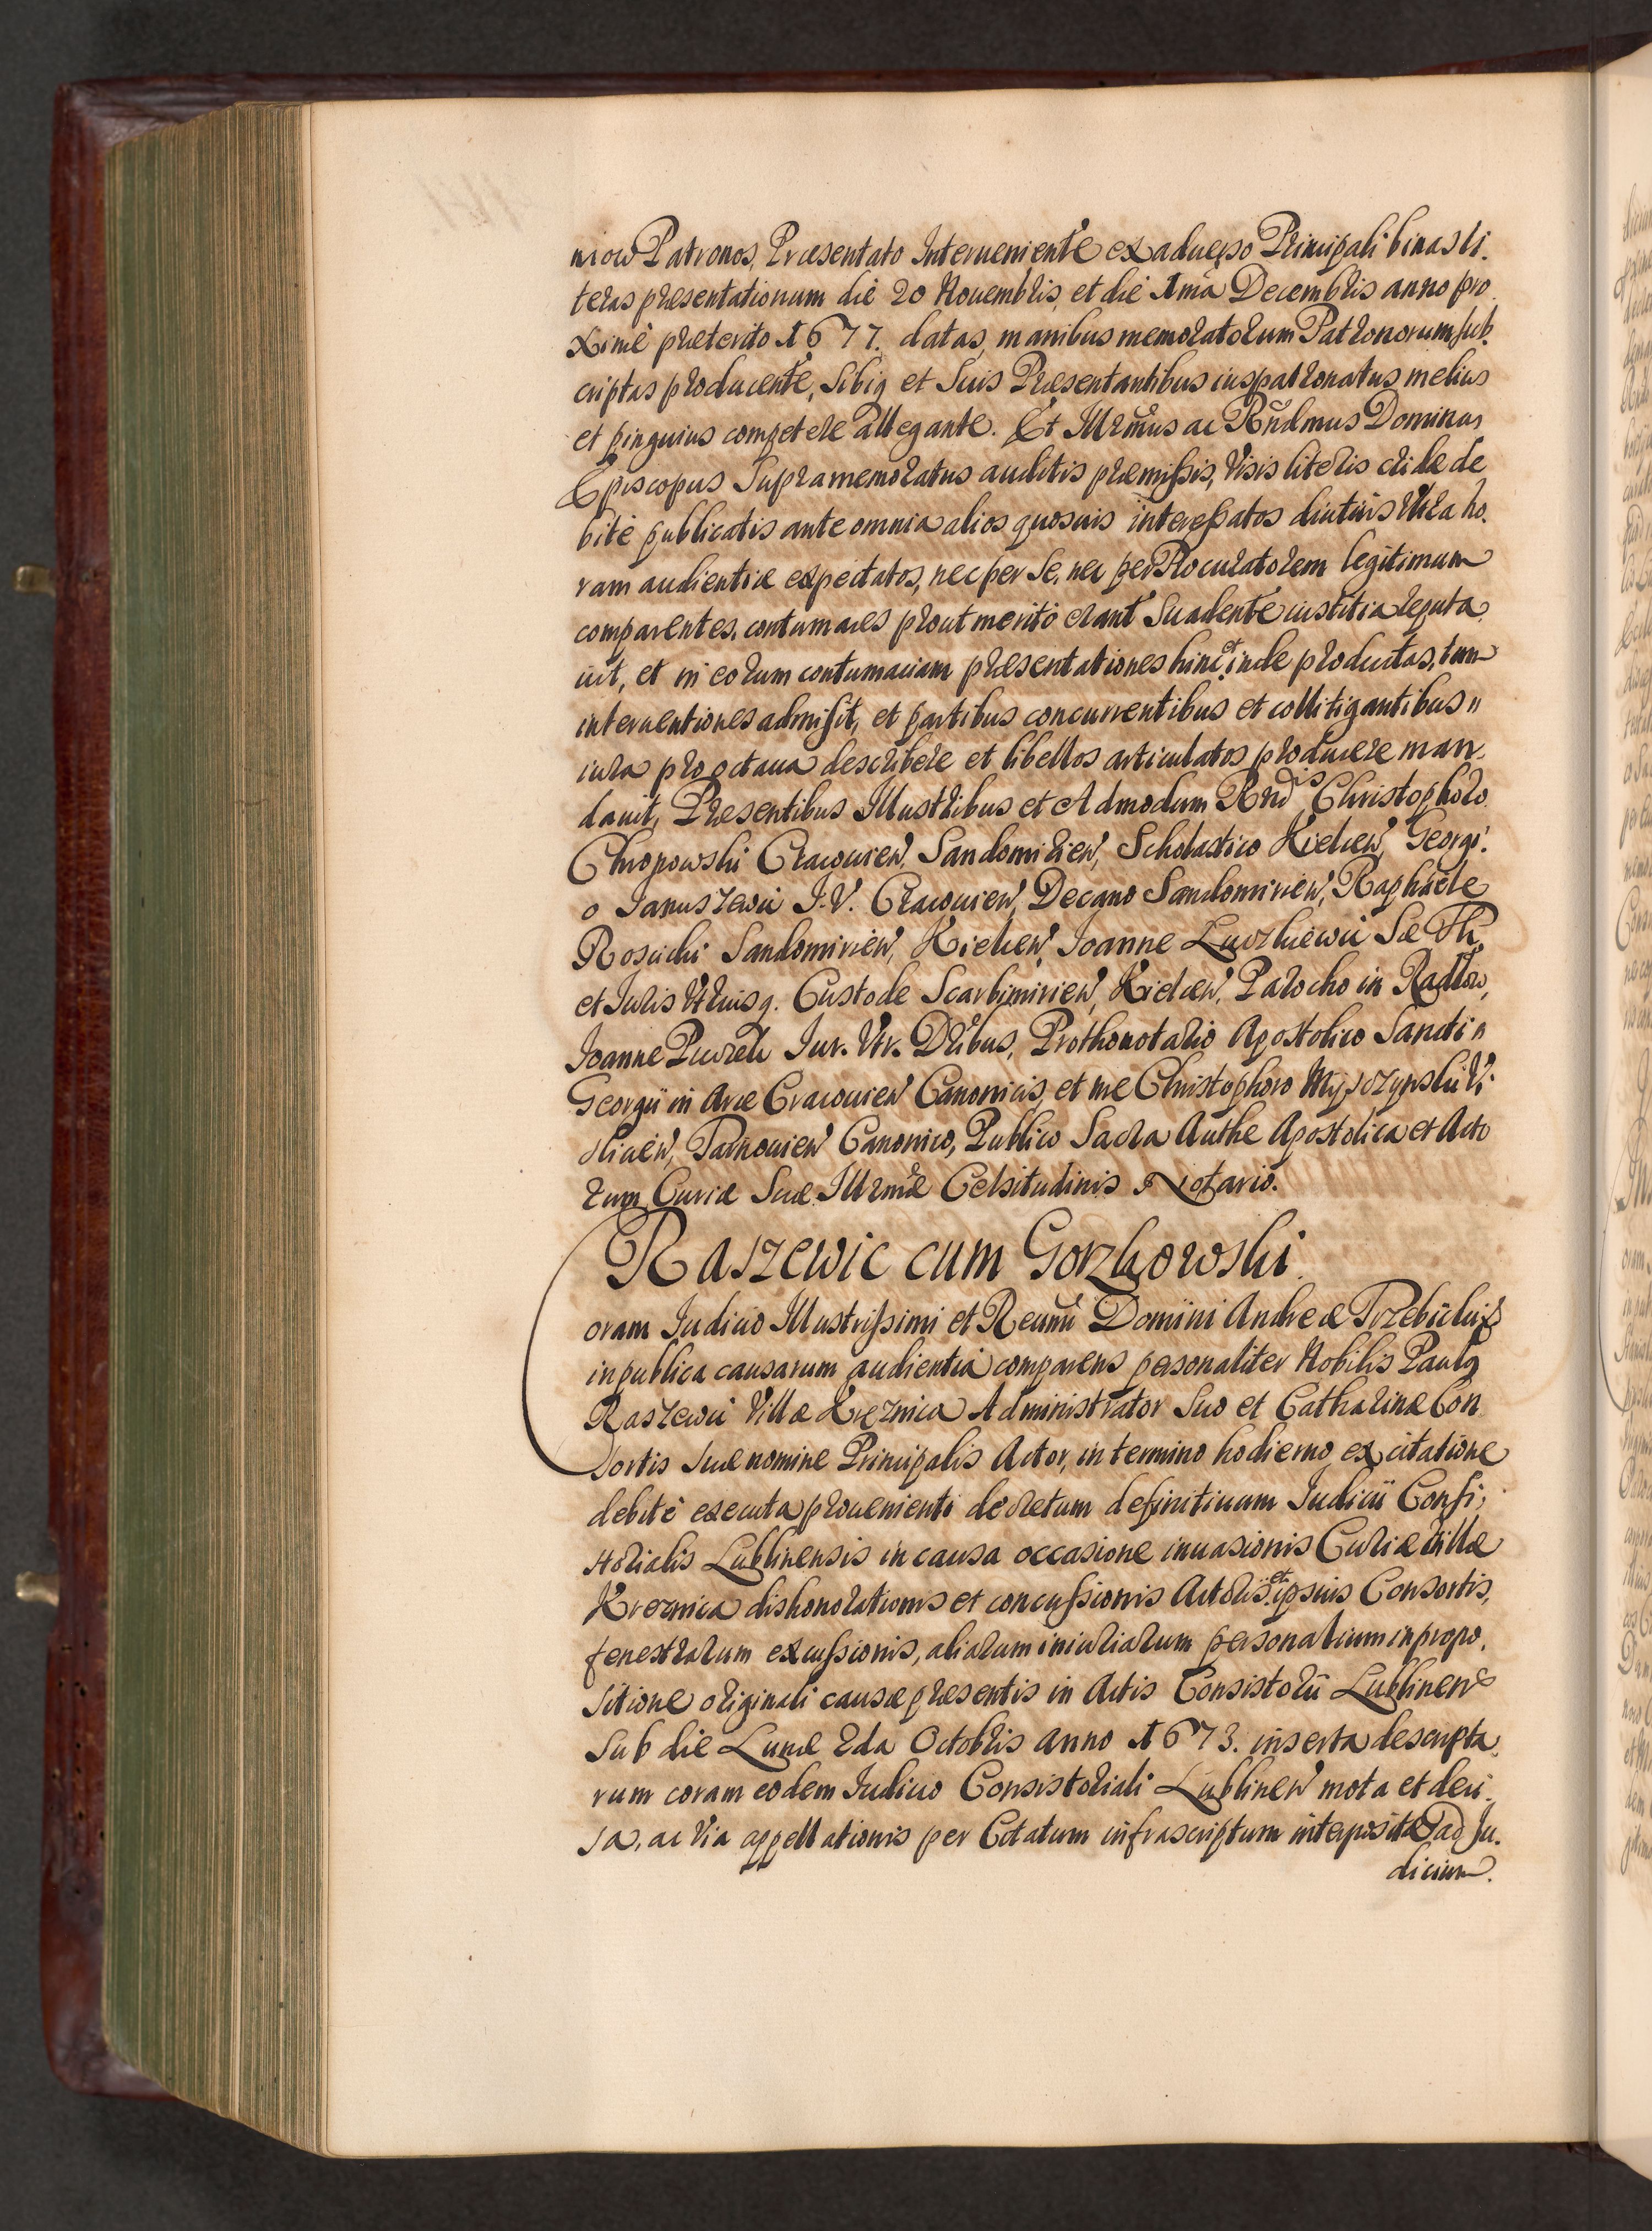 niow Patronos, Præsentato Interueniente ex aduerso Principali binas li.
teras præsentationum die 20 Nouembris, et die 1ma Decembris anno pro
ximè præterito 1677. datas, manibus memoratorum Patronorum sub.
criptas producente, Sibiq et Suis Præsentantibus iuspatronatus melius
et pinguius competere allegante. Et Illrmus ac Rndmus Dominus
Episcopus Supramemoratus auditis præmissis, Visis literis cridæ de
bitè publicatis ante omnia alios quosuis interessatos diutius Vltra ho.
ram audientiæ expectatos, nec per Se, nec per Procuratorem legitimum
comparentes, contumaces prout meritò erant Suadente iustitia reputa
uit, et in eorum contumaciam præsentationes hinc et inde productas, tum
interuentiones admisit, et partibus concurrentibus et collitigantibus "
iura pro octaua describere et libellos articulatos producere man.
dauit, Præsentibus Illustribus et Admodum Rndis Christophoro
Chropowski Cracouien, Sandomirien, Scholastico Kielcen, Georgi.
o Januszewic J. V. Cracouien, Decano Sandomirien, Raphaele
Rosicki Sandomirien, Kielcen, Joanne Luczkiewic Sæ Th.
et Juris Vtriusq. Custode Scarbimirien, Kielcen, Parocho in Radłow,
Joanne Jur. Vtr. Dribus, Prothonotario Apostolico Sancti "
Georgii in Arce Cracouien Canonicis, et me Christophoro Vi.
sliceń, Tarnouien Canonico, Publico Sacra Authe Apostolica et Acto
rum Curiæ Suæ Illrmæ Celsitudinis Notario.
Raszewic cum Gorzkowski
oram Judicio Illustrissimi et Reumi Domini Andreæ Trzebicki &
in publica causarum audientia comparens personaliter Nobilis Paulq
Raszewic Villæ Kręznica Administrator Suo et Catharinæ Con
sortis Suæ nomine Principalis Actor, in termino hodierno, ex citatione
debitè executa prouenienti decretum definitiuum Judicii Consi,
storialis Lublinensis in causa occasione inuasionis Curiæ Villæ
Kreznica dishonorationis et concussionis Actoris et ipsius Consortis,
fenestrarum excussionis, aliarum iniuriarum personalium in propo,
sitione originali causæ præsentis in Actis Consistorii Lublinens
Sub die Lunæ 2da Octobris Anno 1673. inserta descripta,
rum coram eodem Judicio Consistoriali Lublinen mota et deci.
sa, ac Via appellationis per Citatum infrascriptum interpositæ ad Ju.
dicium.